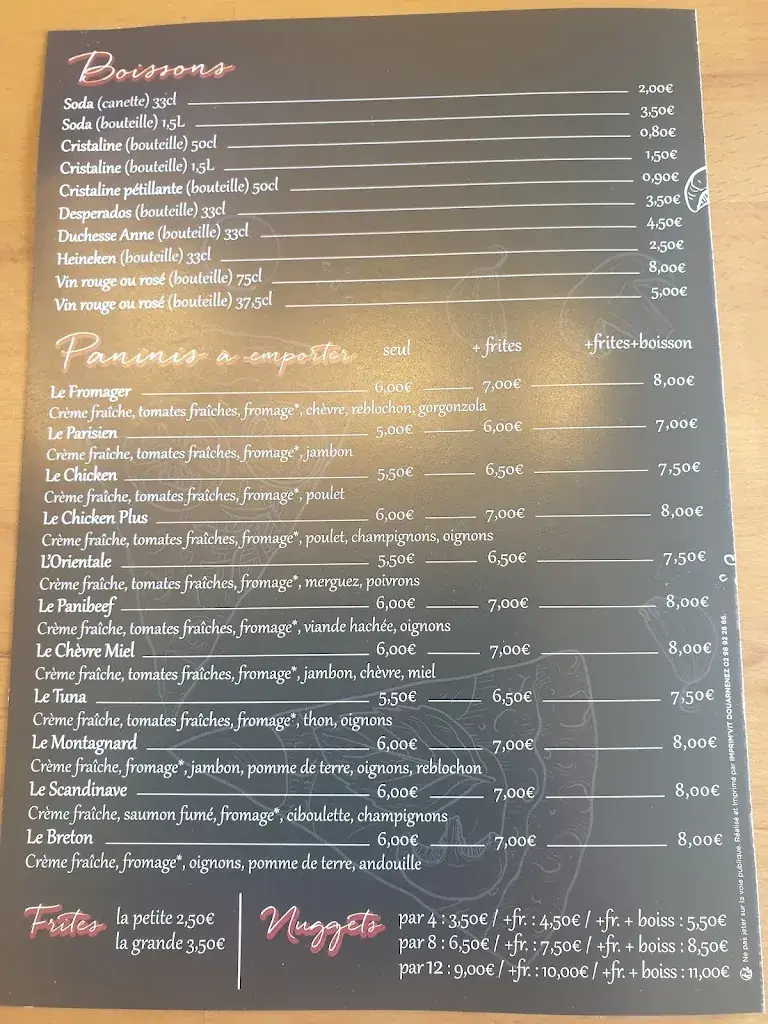 Boissons
Soda (canette) 33cl 2,00€
Soda (bouteille) 1,5L 3,50€
Cristaline (bouteille) 50cl 0,80€
Cristaline (bouteille) 1,5L 1,50€
Cristaline pétillante (bouteille) 50cl 0,90€
Desperados (bouteille) 33cl 3,50€
Duchesse Anne (bouteille) 33cl 4,50€
Heineken (bouteille) 33cl 2,50€
Vin rouge ou rosé (bouteille) 75cl 8,00€
Vin rouge ou rosé (bouteille) 37,5cl 5,00€
Paninis à emporter seul + frites +frites+boisson
Le Fromager 6,00€ 7,00€ 8,00€
Crème fraîche, tomates fraîches, fromage*, chèvre, reblochon, gorgonzola
Le Parisien 5,00€ 6,00€ 7,00€
Crème fraîche, tomates fraîches, fromage*, jambon
Le Chicken 5,50€ 6,50€ 7,50€
Crème fraîche, tomates fraîches, fromage*, poulet
Le Chicken Plus 6,00€ 7,00€ 8,00€
Crème fraîche, tomates fraîches, fromage*, poulet, champignons, oignons
L'Orientale 5,50€ 6,50€ 7,50€
Crème fraîche, tomates fraîches, fromage*, merguez, poivrons
Le Panibeef 6,00€ 7,00€ 8,00€
Crème fraîche, tomates fraîches, fromage*, viande hachée, oignons
Le Chèvre Miel 6,00€ 7,00€ 8,00€
Crème fraîche, tomates fraîches, fromage*, jambon, chèvre, miel
Le Tuna 5,50€ 6,50€ 7,50€
Crème fraîche, tomates fraîches, fromage*, thon, oignons
Le Montagnard 6,00€ 7,00€ 8,00€
Crème fraîche, fromage*, jambon, pomme de terre, oignons, reblochon
Le Scandinave 6,00€ 7,00€ 8,00€
Crème fraîche, saumon fumé, fromage*, ciboulette, champignons
Le Breton 6,00€ 7,00€ 8,00€
Crème fraîche, fromage*, oignons, pomme de terre, andouille
Frites la petite 2,50€
la grande 3,50€
Nuggets par 4 : 3,50€ / +fr. : 4,50€ / +fr. + boiss : 5,50€
par 8 : 6,50€ / +fr. : 7,50€ / +fr. + boiss : 8,50€
par 12 : 9,00€ / +fr. : 10,00€ / +fr. + boiss : 11,00€
Ne pas jeter sur la voie publique. Réalisé et Imprimé par IMPRIM'VIT DOUARNENEZ 02 98 92 28 66.